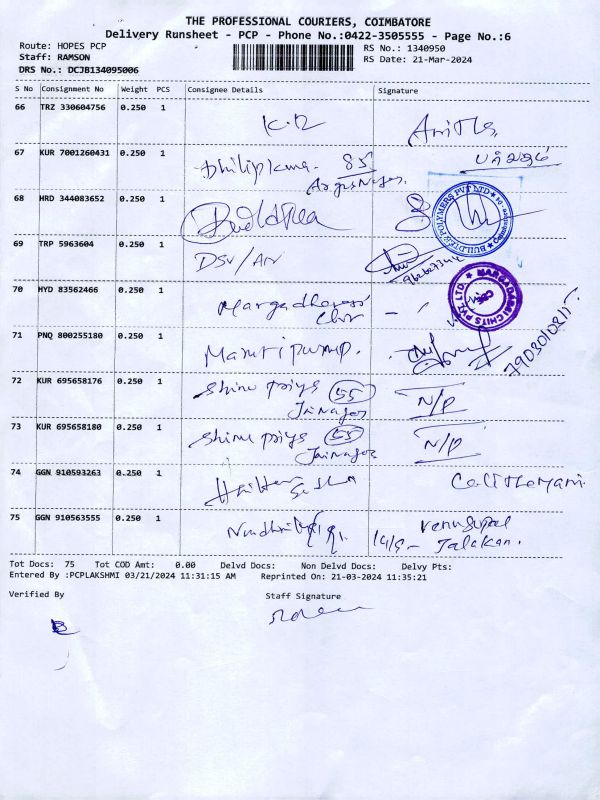 THE PROFESSIONAL COURIERS, COIMBATORE
Delivery Runsheet - PCP - Phone No.:0422-3505555 - Page No.:6
Route: HOPES PCP
RS No.: 1340950
Staff: RAMSON
RS Date: 21-Mar-2024
DRS No.: DCJB134095006
S No Consignment No Weight PCS Consignee Details Signature
66 TRZ 330604756 0.250 1
K.R
67 KUR 7001260431 0.250 1
85
68 HRD 344083652 0.250 1
BUILDTEK POLYMERS PVT LTD
69 TRP 5963604 0.250 1
DSV/Air
70 HYD 83562466 0.250 1
MARGADARSI CHITS PVT. LTD.
71 PNQ 800255180 0.250 1
Maruti pump.
72 KUR 695658176 0.250 1
Shinu priya 55 N/P
Jainagar
73 KUR 695658180 0.250 1
Shinu priya 55 N/P
Jainagar
74 GGN 910593263 0.250 1
75 GGN 910563555 0.250 1
Venugopal
Tot Docs: 75 Tot COD Amt: 0.00 Delvd Docs: Non Delvd Docs: Delvy Pts:
Entered By :PCPLAKSHMI 03/21/2024 11:31:15 AM Reprinted On: 21-03-2024 11:35:21
Verified By Staff Signature